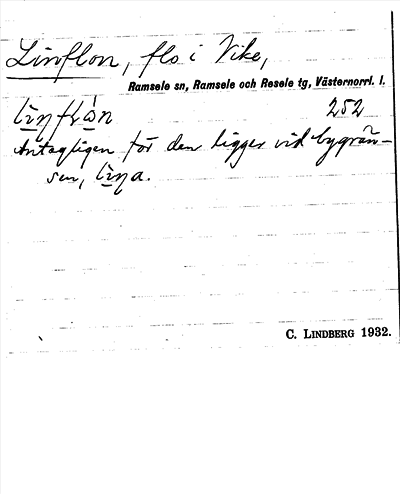 Linflon, flo i Vike,
Ramsele sn, Ramsele och Resele tg, Västernorrl. l.
252
Antagligen för den ligger vid bygrän-
sen,
C. LINDBERG 1932.